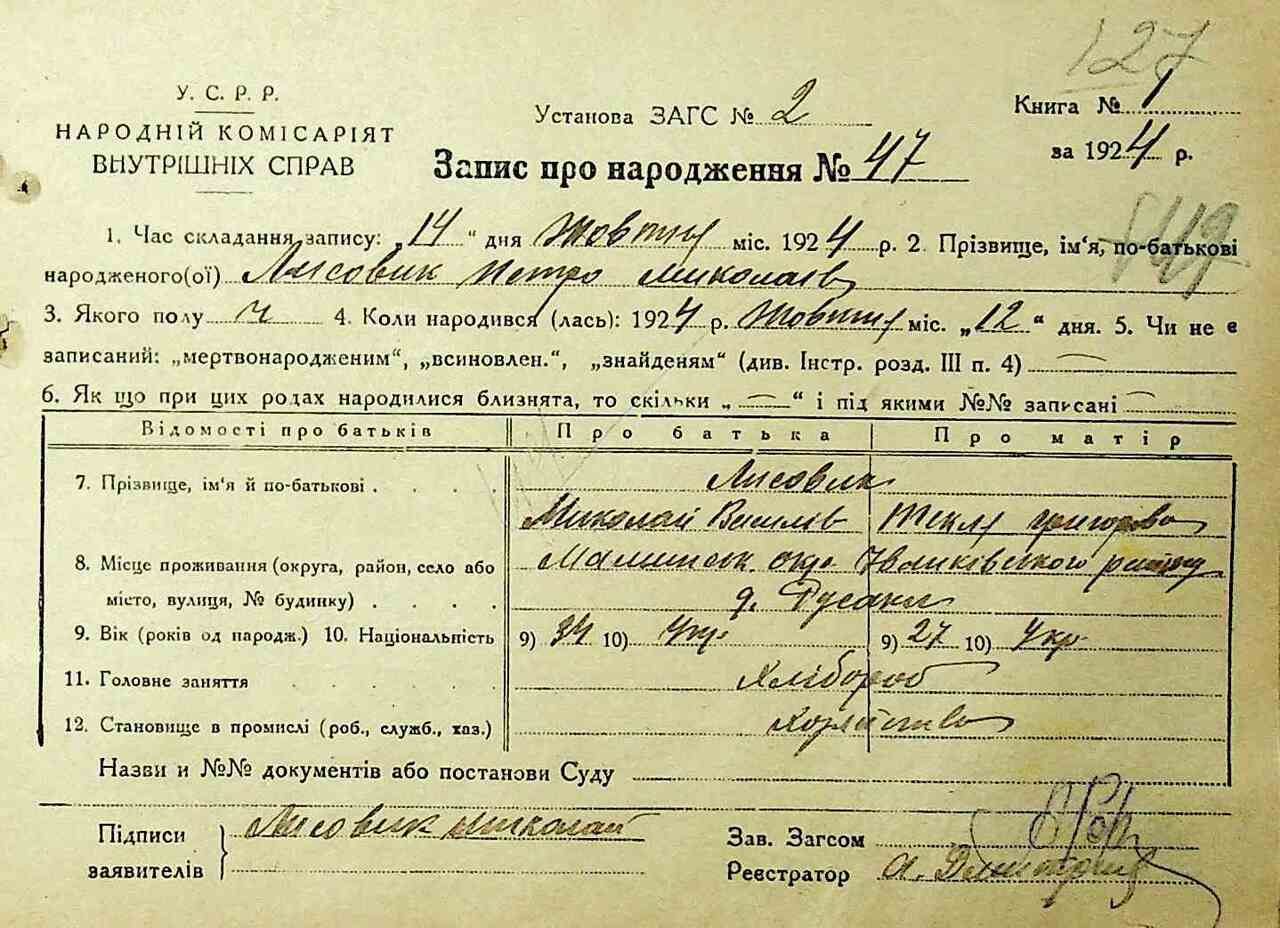 127
У. С. Р. Р.
НАРОДНІЙ КОМІСАРІЯТ
ВНУТРІШНІХ СПРАВ
Установа ЗАГС № 2
Книга № 1
за 1924 р.
Запис про народження № 47
1. Час складання запису: „14“ дня Жовтня міс. 1924 р. 2. Прізвище, ім'я, по-батькові
народженого(ої) Лисовик Петро Миколаїв
3. Якого полу ч 4. Коли народився (лась): 1924 р. Жовтня міс. „12“ дня. 5. Чи не є
записаний: „мертвонародженим“, „всиновлен.“, „знайденям“ (див. Інстр. розд. III п. 4)
6. Як що при цих родах народилися близнята, то скільки „—“ і під якими №№ записані —
Відомості про батьків Про батька Про матір
7. Прізвище, ім'я й по-батькові . . . . Лисовик
Миколай Василів Текля Григорова
8. Місце проживання (округа, район, село або Малинськ. окр. Іванківського району
місто, вулиця, № будинку) . . . . д. Русаки
9. Вік (років од народж.) 10. Національність 9) 34 10) Укр 9) 27 10) Укр
11. Головне заняття . . . . . Хлібороб
12. Становище в промислі (роб., служб., хаз.) Хозяйство
Назви и №№ документів або постанови Суду
Підписи Лисовик Николай
заявителів
Зав. Загсом
Реєстратор А.